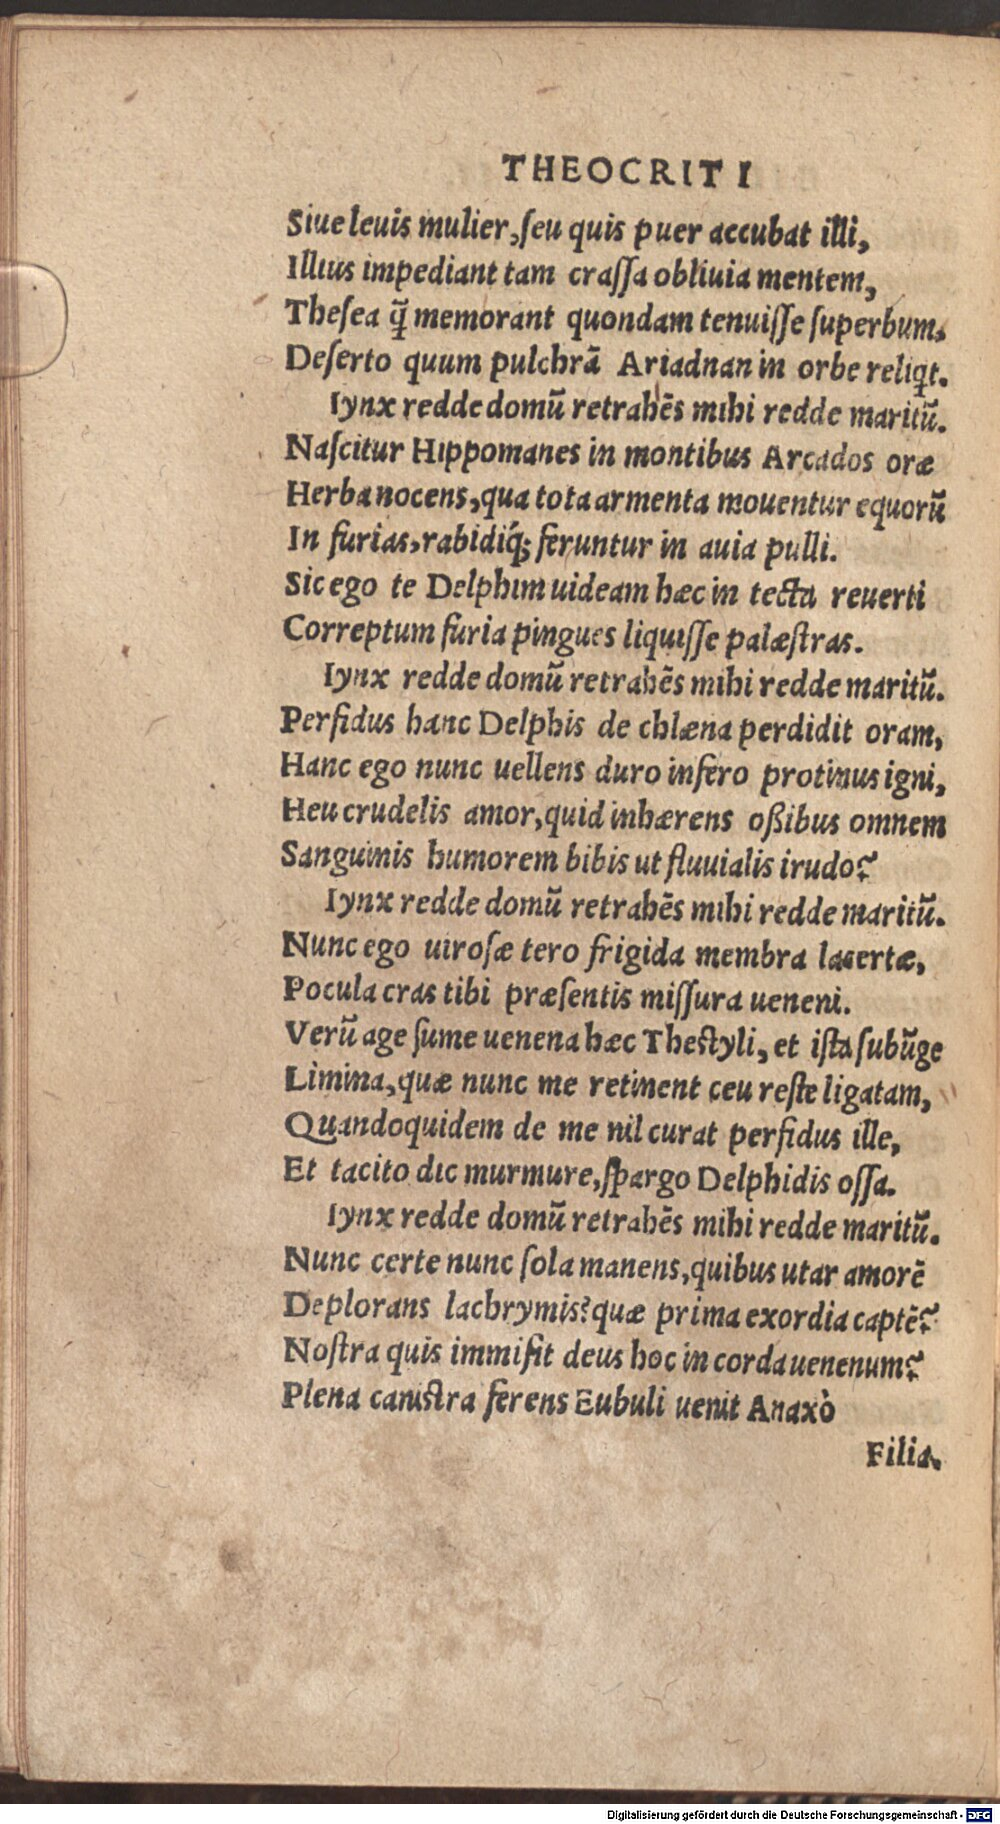 THEOCRITI
Siue leuis mulier, ſeu quis puer accubat illi,
Illius impediant tam craſſa obliuia mentem,
Theſea q̃ memorant quondam tenuiſſe ſuperbum,
Deſerto quum pulchrã Ariadnan in orbe reliqt.
Iynx redde domũ retrahẽs mihi redde maritũ.
Naſcitur Hippomanes in montibus Arcados oræ
Herba nocens, qua tota armenta mouentur equorũ
In furias, rabidiq́; feruntur in auia pulli.
Sic ego te Delphim uideam hæc in tecta reuerti
Correptum furia pingues liquiſſe palæſtras.
Iynx redde domũ retrahẽs mihi redde maritũ.
Perfidus hanc Delphis de chlæna perdidit oram,
Hanc ego nunc uellens duro infero protinus igni,
Heu crudelis amor, quid inhærens oßibus omnem
Sanguinis humorem bibis ut fluuialis irudo?
Iynx redde domũ retrahẽs mihi redde maritũ.
Nunc ego uiroſæ tero frigida membra lacertæ,
Pocula cras tibi præſentis miſſura ueneni.
Verũ age ſume uenena hæc Theſtyli, et iſta ſubũge
Limina, quæ nunc me retinent ceu reſte ligatam,
Quandoquidem de me nil curat perfidus ille,
Et tacito dic murmure, ſpargo Delphidis oſſa.
Iynx redde domũ retrahẽs mihi redde maritũ.
Nunc certe nunc ſola manens, quibus utar amorẽ
Deplorans lachrymis? quæ prima exordia captẽ?
Noſtra quis immiſit deus hoc in corda uenenum?
Plena caniſtra ferens Eubuli uenit Anaxò
Filia.
Digitalisierung gefördert durch die Deutsche Forschungsgemeinschaft - DFG